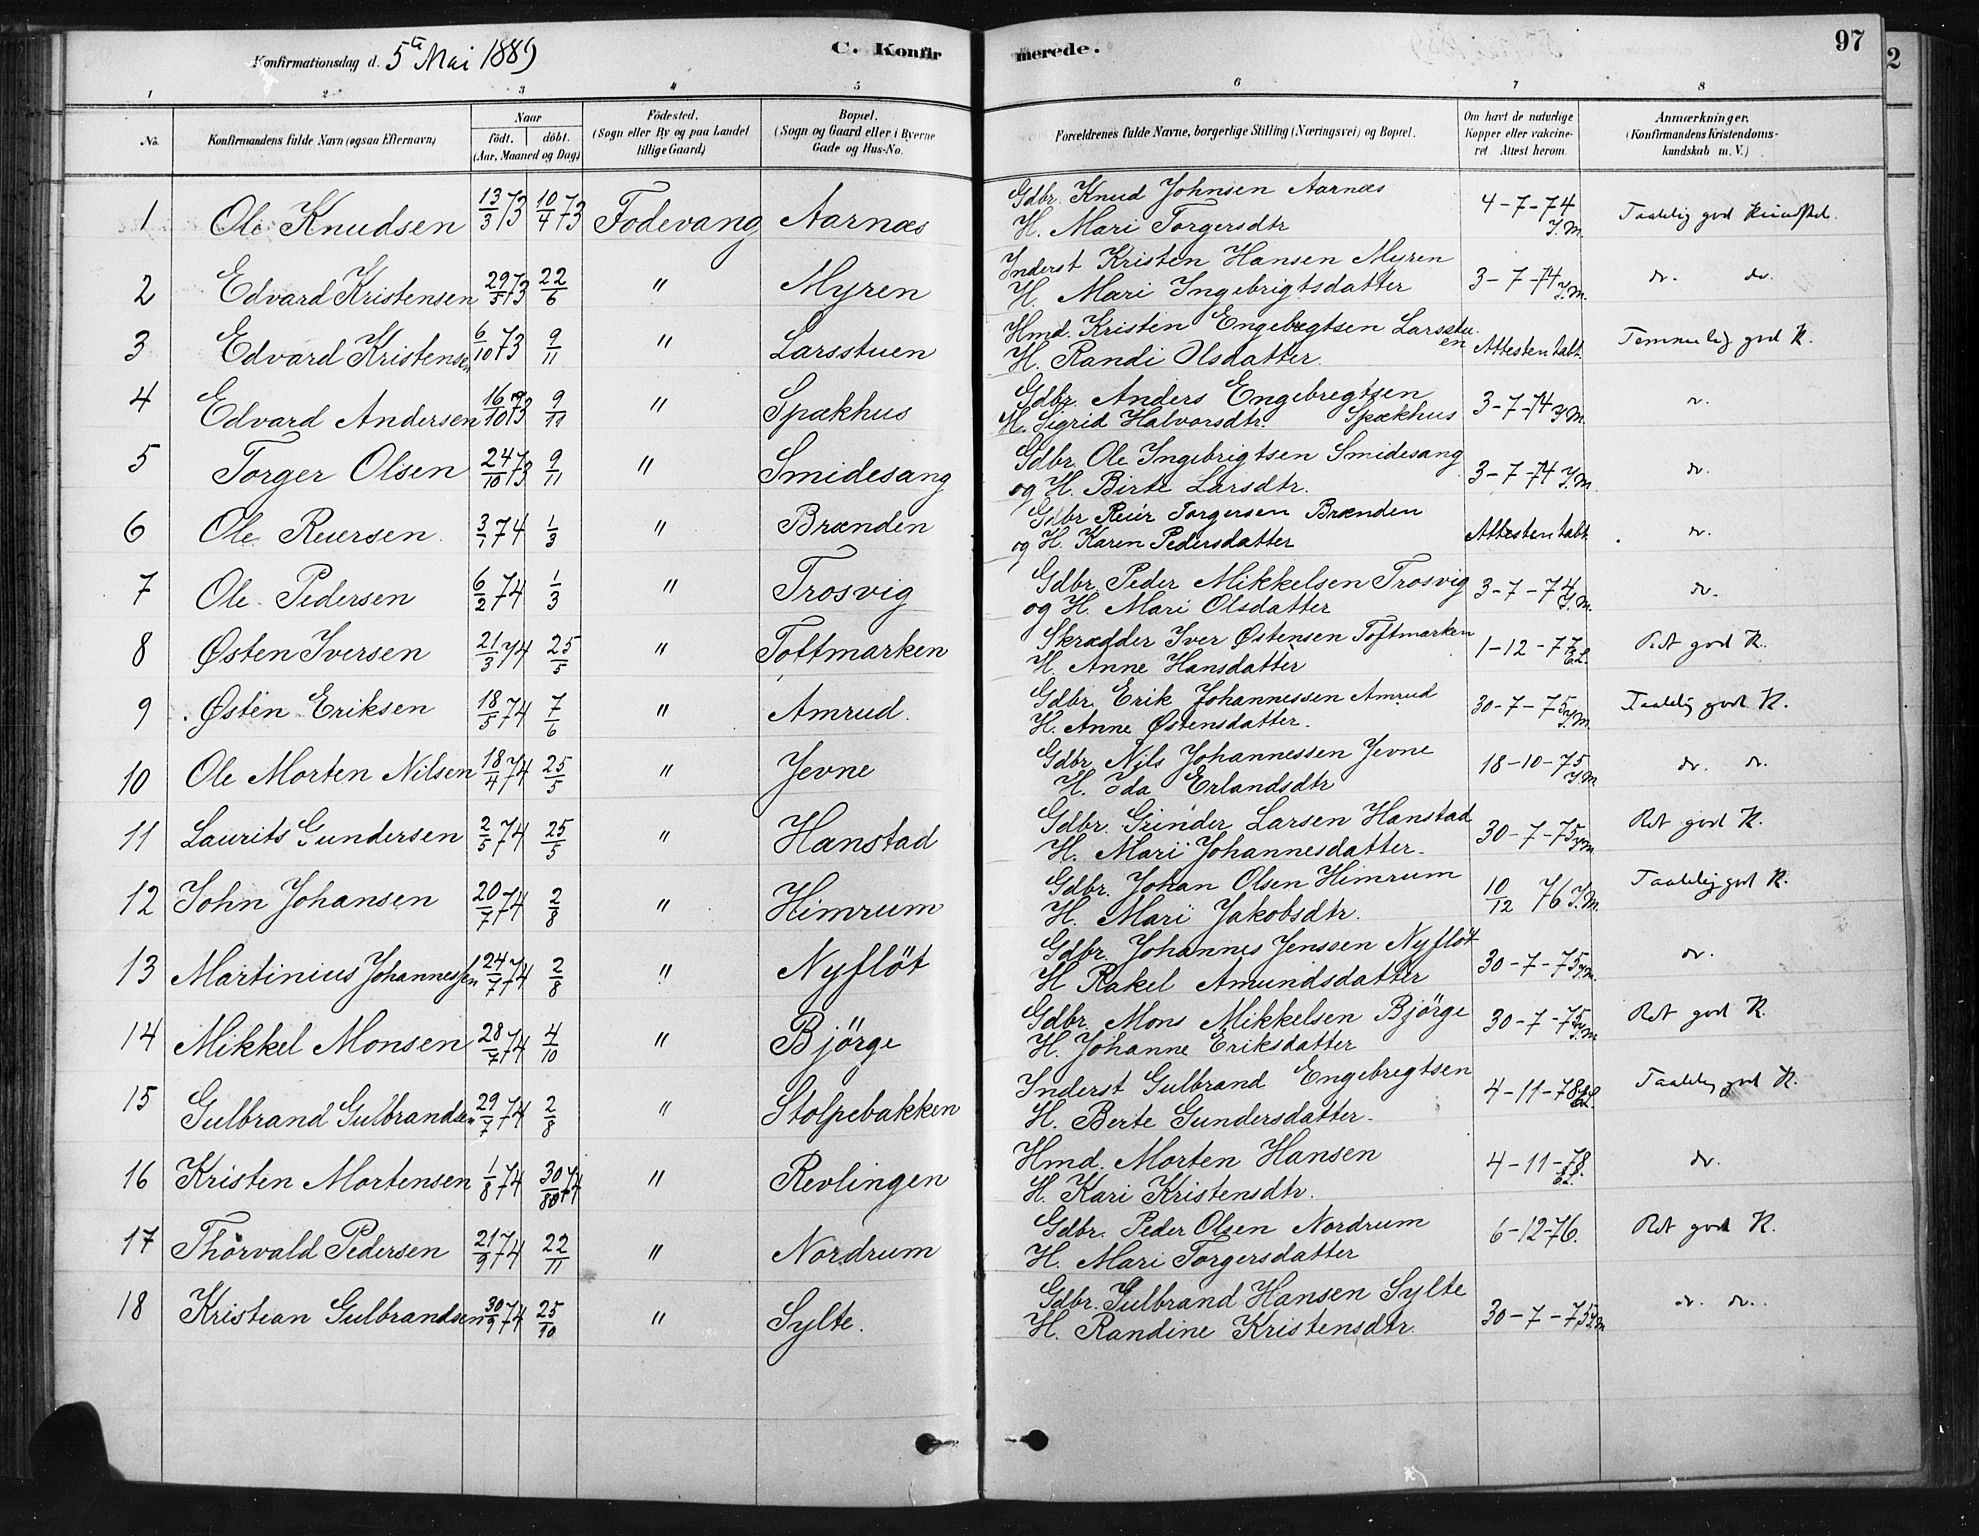 Konfirmationsdag d. 5te Mai 1889
C. Konfirmerede.
97
2
1 2 3 4 5 6 7 8
No.
Konfirmandens fulde Navn (ogsaa Efternavn)
Naar
födt. döbt.
(Aar, Maaned og Dag)
Födested.
(Sogn eller By og paa Landet
tillige Gaard)
Bopæl.
(Sogn og Gaard eller i Byerne
Gade og Hus-No.
Forældrenes fulde Navne, borgerlige Stilling (Næringsvei) og Bopæl.
Om havt de naturlige
Kopper eller vakcine-
ret Attest herom.
Anmærkninger.
(Konfirmandens Kristendoms-
kundskab m. V.)
1 Ole Knudsen 13/3 73 10/4 73 Fodevang Aarnæs Gdbr. Knud Johnsen Aarnæs 4-7-74 Taalelig god Kundskab.
H. Mari Torgersdtr I.M.
2 Edvard Kristensen 29/5 73 22/6 " Myren Inderst Kristen Hansen Myren 3-7-74 I.M. do. do.
H. Mari Ingebrigtsdatter
3 Edvard Kristensen 6/10 73 9/11 " Larsstuen Hmd. Kristen Engebregtsen Larsstuen Attesten tabt Temmelig god K.
H. Randi Olsdatter
4 Edvard Andersen 16/10 73 9/11 " Spækhus Gdbr. Anders Engebregtsen 3-7-74 I.M. do.
H. Sigrid Halvorsdtr. Spækhus
5 Torger Olsen 24/10 73 9/11 " Smidesang Gdbr. Ole Ingebrigtsen Smidesang 3-7-74 I.M. do.
og H. Birte Larsdtr.
6 Ole Reiersen 3/1 74 1/3 " Brænden Gdbr Reier Torgersen Brænden Attesten tabt do.
og H. Karen Pedersdatter
7 Ole Pedersen 6/2 74 1/3 " Trosvig Gdbr. Peder Mikkelsen Trosvig 3-7-74 I.M. do.
og H. Mari Olsdatter
8 Østen Iversen 21/3 74 25/5 " Toftmarken Skrædder Iver Østensen Toftmarken 1-12-77 E.L. Ret god K.
H. Anne Hansdatter
9 Østen Eriksen 18/5 74 7/6 " Amrud. Gdbr. Erik Johannessen Amrud 30-7-75 I.M. Taalelig god K.
H. Anne Østensdatter.
10 Ole Morten Nilsen 18/4 74 25/5 " Jevne Gdbr Nils Johannessen Jevne 18-10-75 I.M. do. do.
H. Ida Erlandsdtr
11 Laurits Gundersen 2/5 74 25/5 " Hanstad Gdbr. Gunder Larsen Hanstad 30-7-75 I.M. Ret god K.
H. Mari Johannesdatter.
12 John Johansen 20/7 74 2/8 " Himrum Gdbr. Johan Olsen Himrum 10/12 76 I.M. Taalelig god K.
H. Mari Jakobsdtr.
13 Martinius Johannessen 24/7 74 2/8 " Nyflöt Gdbr. Johannes Jenssen Nyflöt 30-7-75 I.M. do.
H Rakel Amundsdatter
14 Mikkel Monsen 28/7 74 4/10 " Bjórge Gdbr. Mons Mikkelsen Bjórge 30-7-75 I.M. Ret god K.
H. Johanne Eriksdatter
15 Gulbrand Gulbrandsen 29/7 74 2/8 " Stolpebakken Inderst Gulbrand Engebregtsen 4-11-78 E.L. Taalelig god K.
H. Berte Gundersdatter.
16 Kristen Mortensen 1/8 74 30/8 74 " Revlingen Hmd. Morten Hansen 4-11-78 E.L. do.
H. Kari Kristensdtr.
17 Thorvald Pedersen 21/9 74 22/11 " Nordrum Gdbr. Peder Olsen Nordrum 6-12-76. Ret god K.
H. Mari Torgersdatter
18 Kristian Gulbrandsen 30/9 74 25/10 " Sylte. Gdbr. Gulbrand Hansen Sylte 30-7-75 I.M. do. do.
H. Randine Kristensdtr.